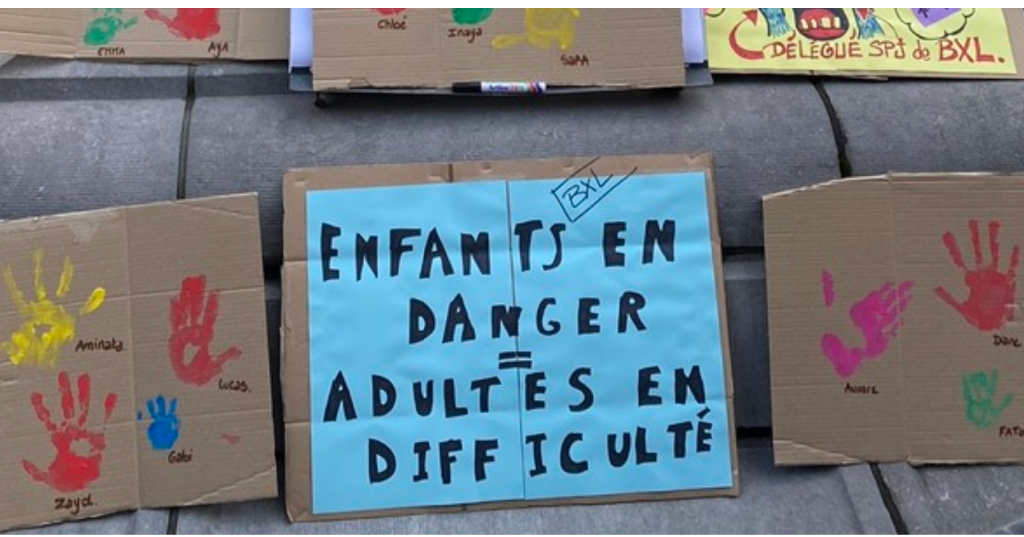 EMMA
AYA
Chloé
Inaya
SaAA
DÉLÉGUÉ SPJ de BXL.
BXL
ENFANTS EN
DANGER
=
ADULTES EN
DIFFICULTÉ
Aminata
Lucas.
Gabi
Zayd.
Aurore
FATO